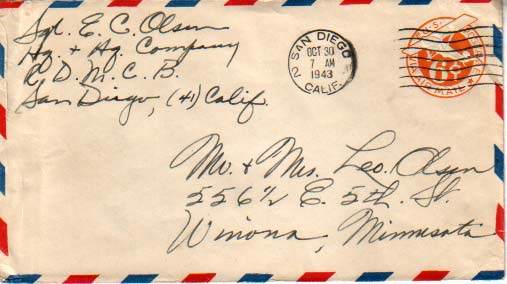 Sgt. E. C. Olsen
Hq. + Hq. Company
R. D. M. C. B.
San Diego, (41) Calif.
SAN DIEGO
2
OCT 30
7 AM
1943
CALIF.
U.S.
AIR MAIL
Mr. + Mrs. Leo. Olsen
556 1/2 E. 5th. St.
Winona, Minnesota